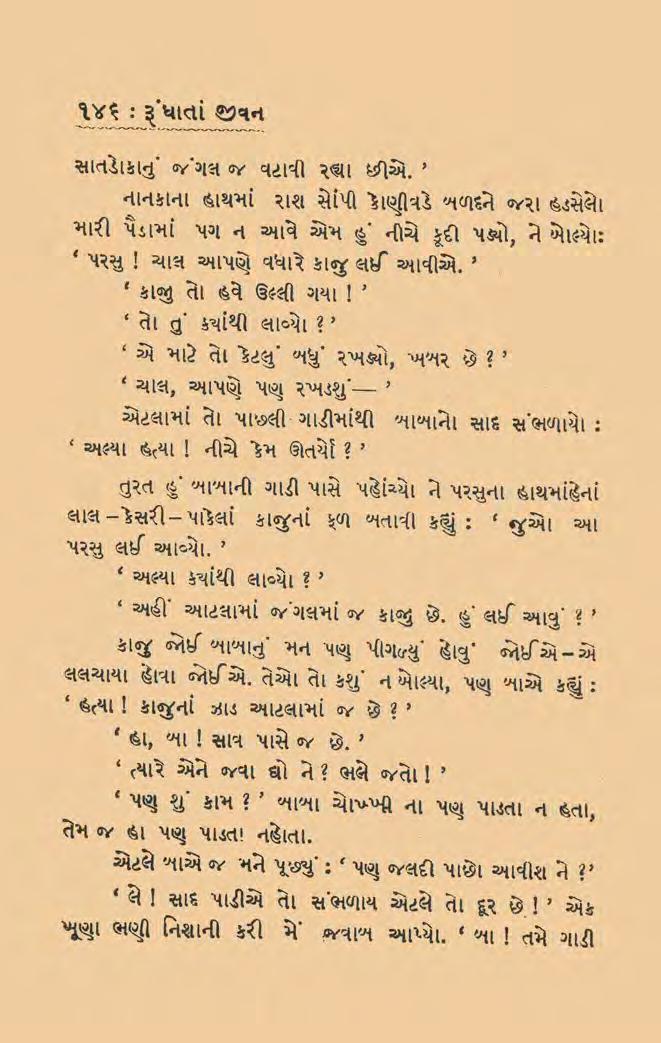 ૧૪૬ : રૂંધાતાં જીવન
સાતડોકાનું જંગલ જ વટાવી રહ્યા છીએ. ’
નાનકાના હાથમાં રાશ સોંપી કોણીવડે બળદને જરા હડસેલો
મારી પૈડામાં પગ ન આવે એમ હું નીચે કૂદી પડ્યો, ને બોલ્યોઃ
‘ પરસુ ! ચાલ આપણે વધારે કાજુ લઈ આવીએ. ’
‘ કાજુ તો હવે ઉલ્લી ગયા ! ’
‘ તો તું ક્યાંથી લાવ્યો ? ’
‘ એ માટે તો કેટલું બધું રખડ્યો, ખબર છે ? ’
‘ ચાલ, આપણે પણ રખડશું— ’
એટલામાં તો પાછલી ગાડીમાંથી બાબાનો સાદ સંભળાયો :
‘ અલ્યા હત્યા ! નીચે કેમ ઊતર્યો ? ’
તુરત હું બાબાની ગાડી પાસે પહોંચ્યો ને પરસુના હાથમાંહેનાં
લાલ – કેસરી – પાકેલાં કાજુનાં ફળ બતાવી કહ્યું : ‘ જુઓ આ
પરસુ લઈ આવ્યો. ’
‘ અલ્યા ક્યાંથી લાવ્યો ? ’
‘ અહીં આટલામાં જંગલમાં જ કાજુ છે. હું લઈ આવું ? ’
કાજુ જોઈ બાબાનું મન પણ પીગળ્યું હોવું જોઈએ – એ
લલચાયા હોવા જોઈએ. તેઓ તો કશું ન બોલ્યા, પણ બાએ કહ્યું :
‘ હત્યા ! કાજુનાં ઝાડ આટલામાં જ છે ? ’
‘ હા, બા ! સાવ પાસે જ છે. ’
‘ ત્યારે એને જવા દ્યો ને ? ભલે જતો ! ’
‘ પણ શું કામ ? ’ બાબા ચોખ્ખી ના પણ પાડતા ન હતા,
તેમ જ હા પણ પાડતા નહોતા.
એટલે બાએ જ મને પૂછ્યું : ‘ પણ જલદી પાછો આવીશ ને ?’
‘ લે ! સાદ પાડીએ તો સંભળાય એટલે તો દૂર છે ! ’ એક
ખૂણા ભણી નિશાની કરી મેં જવાબ આપ્યો. ‘ બા ! તમે ગાડી